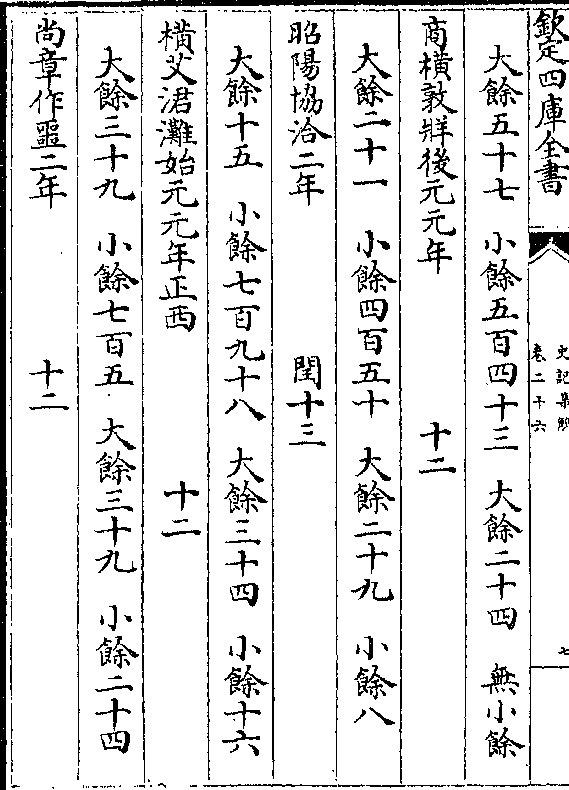 欽定四庫全書
史記集解
卷二十六
七
大餘五十七　小餘五百四十三　大餘二十四　無小餘
商橫敦牂後元元年　十二
大餘二十一　小餘四百五十　大餘二十九　小餘八
昭陽協洽二年　閏十三
大餘十五　小餘七百九十八　大餘三十四　小餘十六
橫艾涒灘始元元年正西　十二
大餘三十九　小餘七百五　大餘三十九　小餘二十四
尚章作噩二年　十二